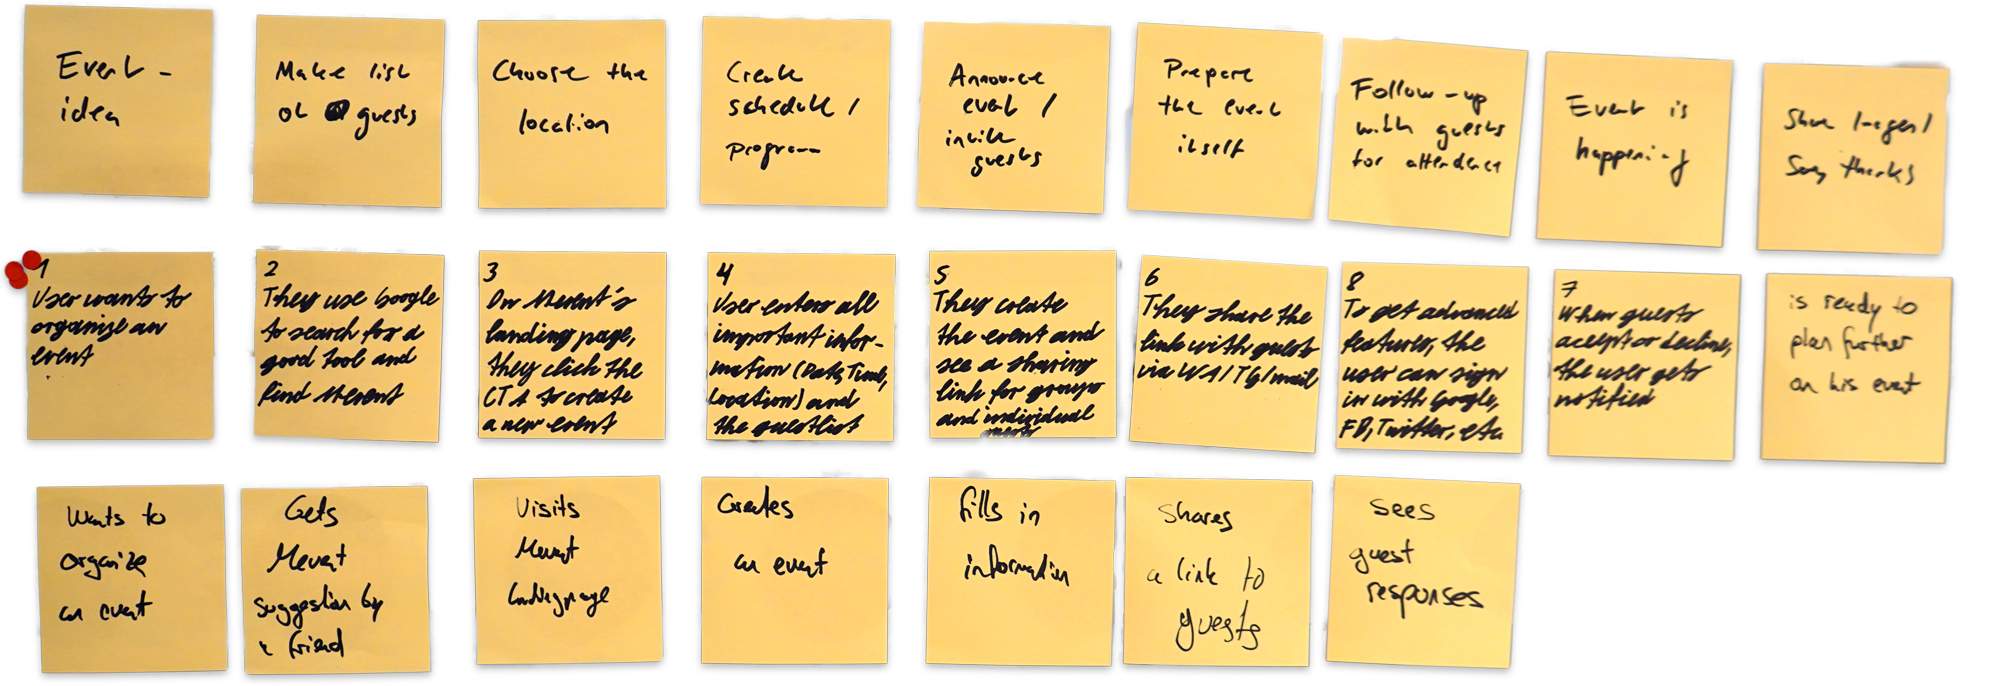 Event-
idea
Make list
of guests
Choose the
location
Create
schedule /
program
Announce
event /
invite
guests
Prepare
the event
itself
Follow-up
with guests
for attendence
Event is
happening
Share images /
Say thanks
1
User wants to
organize an
event
2
They use Google
to search for a
good tool and
find Mevent
3
On Mevent's
landing page,
they click the
CTA to create
a new event
4
User enters all
important infor-
mation (Date, Time,
Location) and
the guestlist
5
They create
the event and
see a sharing
link for groups
and individual
guests
6
They share the
link with guests
via WA/TG/mail
8
To get advanced
features, the
user can sign
in with Google,
FB, Twitter, etc.
7
When guests
accept or decline,
the user gets
notified
is ready to
plan further
on his event
Wants to
organize
an event
Gets
Mevent
suggestion by
a friend
Visits
Mevent
landingpage
Creates
an event
fills in
information
shares
a link to
guests
sees
guest
responses